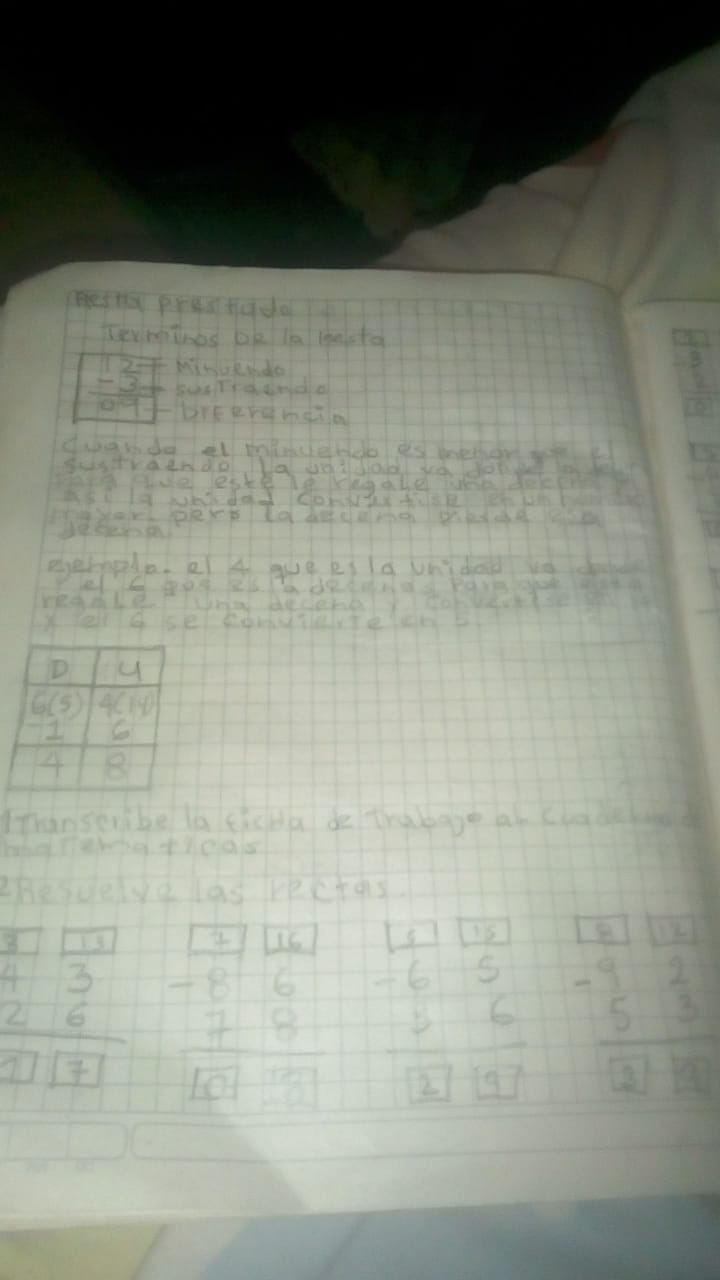 Resta prestado
Terminos De la Resta
12 - Minuendo
- 3 - sustraendo
09 - Diferencia
Cuando el minuendo es menor que el
sustraendo la unidad va donde la
para que este le regale una decena
así la unidad convertise en un
mayor pero la decena pierde
decena.
ejemplo. el 4 que es la unidad va
el 6 que es la decena para que
regale una decena y convertise
y el 6 se convierte en 5
D U
6(5) 4(14)
-1 6
4 8
1 Transcribe la ficha de trabajo al cuaderno
matematicas
2 Resuelve las rectas.
3 13 7 16 5 15 8 12
4 3 -8 6 -6 5 -9 2
2 6 7 8 3 6 5 3
1 7 0 8 2 9 3 9